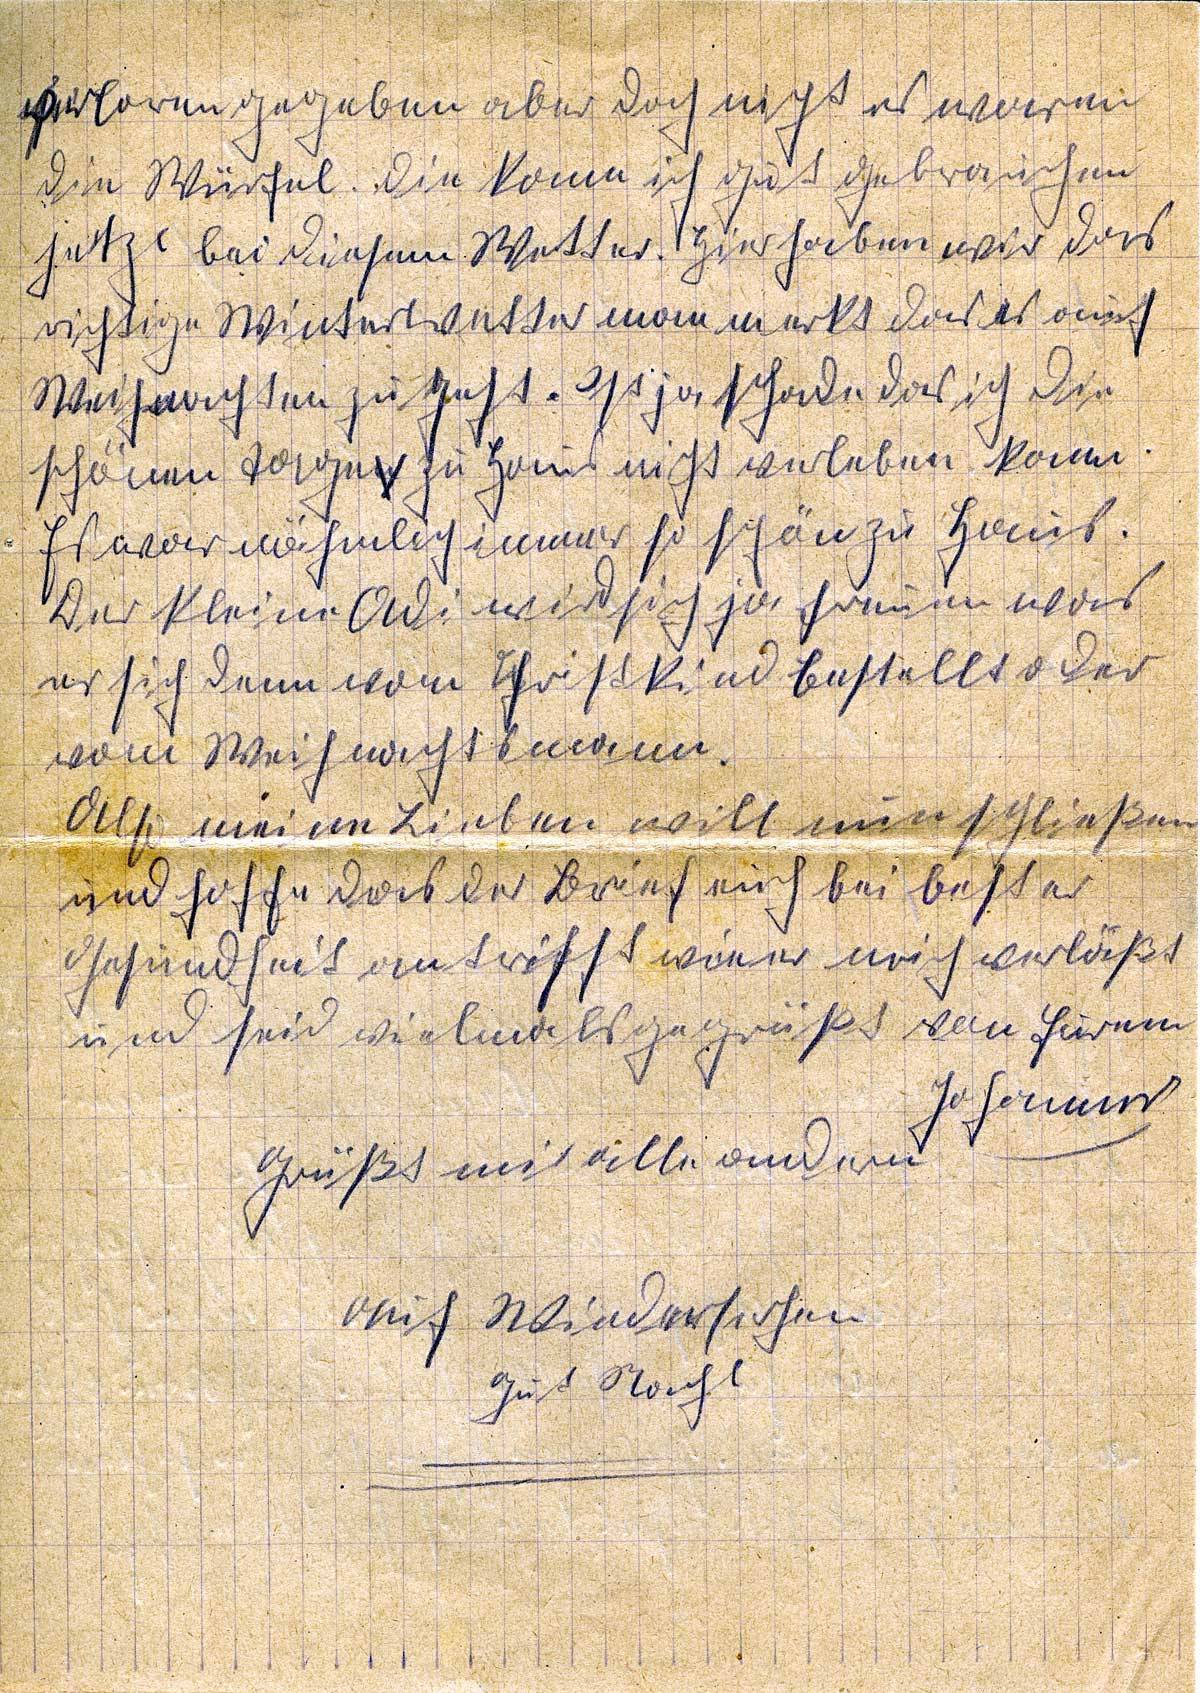 verloren gegeben aber doch nicht es waren
die Würfel. die kann ich gut gebrauchen
jetzt bei diesem Wetter. Hier haben wir das
richtige Winterwetter man merkt das es auf
Weihnachten zu geht. Ist ja schade das ich die
schönen Tage zu Haus nicht verleben kann.
Es war nähmlich immer so schön zu Haus.
Der kleine Adi wird sich ja freuen was
er sich denn vom Christkind bestellt oder
vom Weihnachtsmann.
Also meine Lieben will nun schließen
und hoffe das der Brief euch bei bester
Gesundheit antrifft wie er mich verläßt
und seid vielmals gegrüßt von Eurem
Johannes
Grüßt mir alle andern
Auf Wiedersehen
Gut Nacht